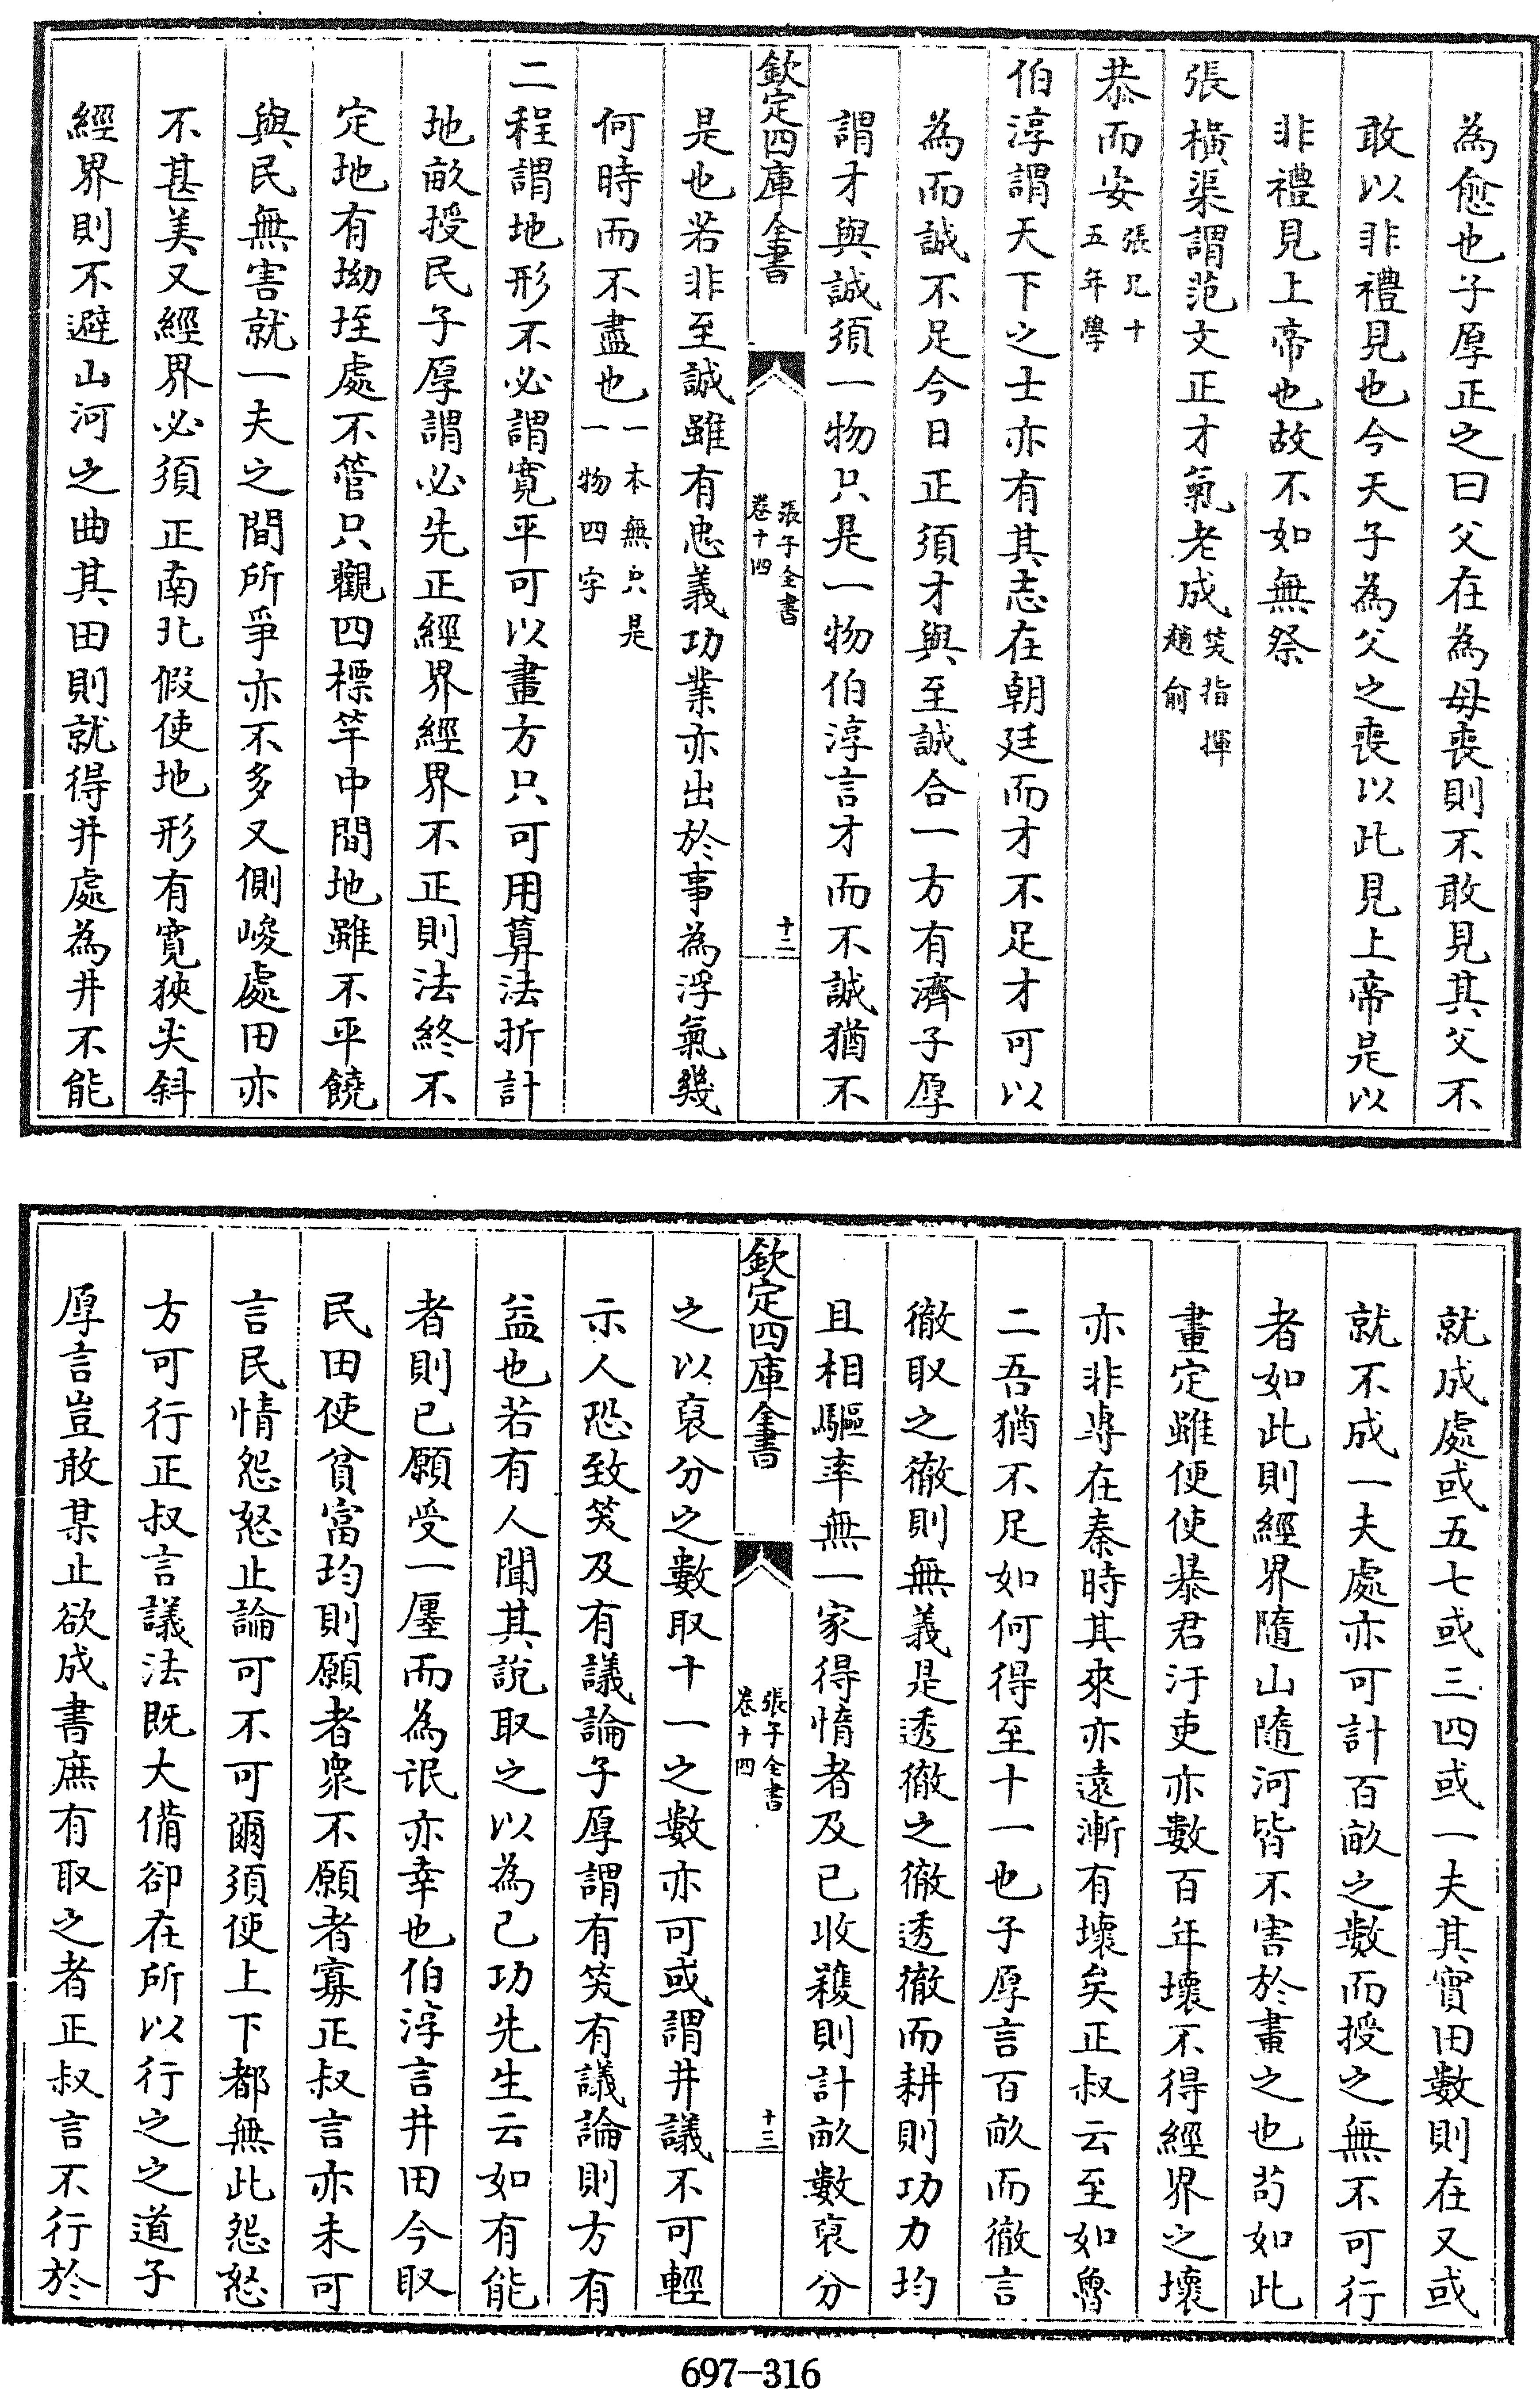 為愈也子厚正之曰父在為母喪則不敢見其父不
敢以非禮見也今天子為父之喪以此見上帝是以
非禮見上帝也故不如無祭
張橫渠謂范文正才氣老成笑指揮趙俞
恭而安張兄十五年學
伯淳謂天下之士亦有其志在朝廷而才不足才可以
為而誠不足今日正須才與至誠合一方有濟子厚
謂才與誠須一物只是一物伯淳言才而不誠猶不
欽定四庫全書
張子全書
卷十四
十二
是也若非至誠雖有忠義功業亦出於事為浮氣幾
何時而不盡也一本無只是一物四字
二程謂地形不必謂寬平可以畫方只可用算法折計
地畝授民子厚謂必先正經界經界不正則法終不
定地有坳垤處不管只觀四標竿中間地雖不平饒
與民無害就一夫之間所爭亦不多又側峻處田亦
不甚美又經界必須正南北假使地形有寬狹尖斜
經界則不避山河之曲其田則就得井處為井不能
就成處或五七或三四或一夫其實田數則在又或
就不成一夫處亦可計百畝之數而授之無不可行
者如此則經界隨山隨河皆不害於畫之也苟如此
畫定雖便使暴君汙吏亦數百年壞不得經界之壞
亦非專在秦時其來亦遠漸有壞矣正叔云至如魯
二吾猶不足如何得至十一也子厚言百畝而徹言
徹取之徹則無義是透徹之徹透徹而耕則功力均
且相驅率無一家得惰者及已收穫則計畝數裒分
欽定四庫全書
張子全書
卷十四
十三
之以裒分之數取十一之數亦可或謂井議不可輕
示人恐致笑及有議論子厚謂有笑有議論則方有
益也若有人聞其說取之以為己功先生云如有能
者則已願受一廛而為氓亦幸也伯淳言井田今取
民田使貧富均則願者衆不願者寡正叔言亦未可
言民情怨怒止論可不可爾須使上下都無此怨怒
方可行正叔言議法既大備卻在所以行之之道子
厚言豈敢某止欲成書庶有取之者正叔言不行於
697-316